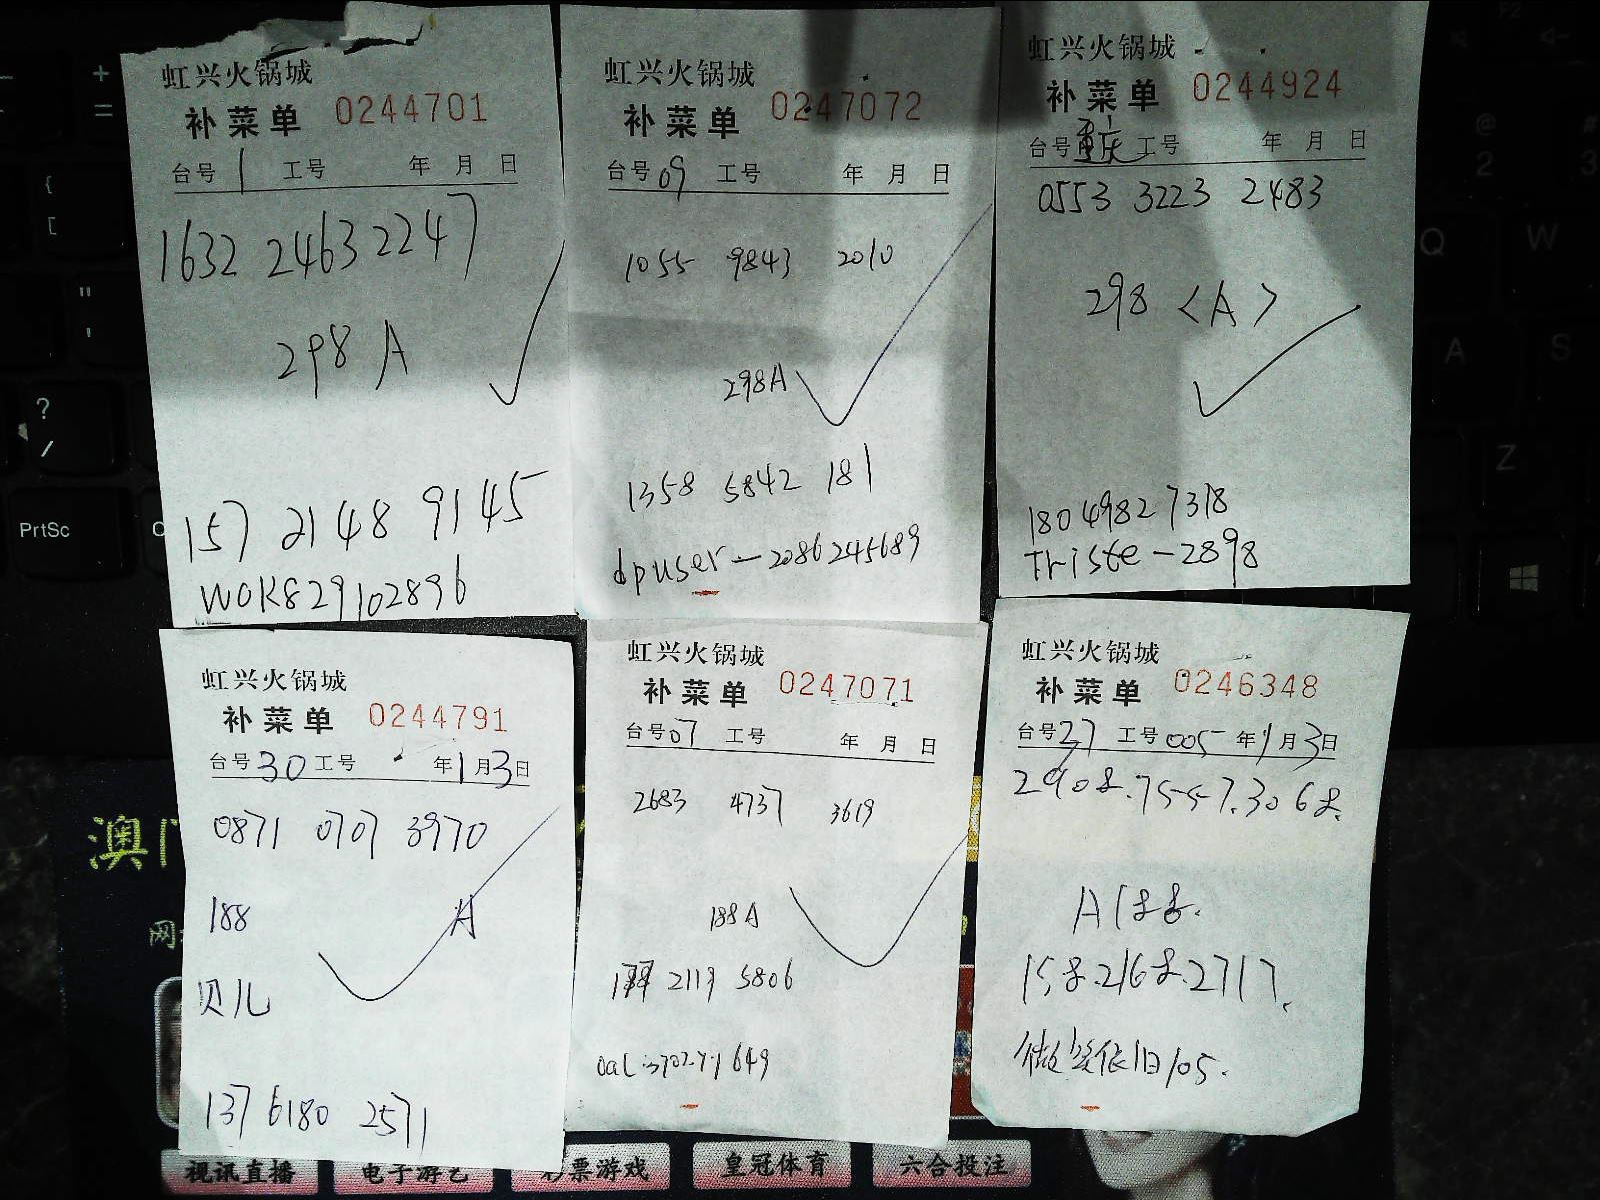 虹兴火锅城
补菜单 0244701
台号 1 工号 年 月 日
1632 2463 2247
298 A
157 2148 9145
WOK829102896
虹兴火锅城
补菜单 0247072
台号 09 工号 年 月 日
1055 9843 2010
298A
1358 5842 181
dpuser-2086245689
虹兴火锅城
补菜单 0244924
台号 重庆 工号 年 月 日
0553 3223 2483
298 <A>
180 4982 7318
Triste-2898
虹兴火锅城
补菜单 0244791
台号 30 工号 年 1 月 3 日
0871 0707 3970
188 A
贝儿
137 6180 2571
虹兴火锅城
补菜单 0247071
台号 07 工号 年 月 日
2683 4737 3619
188A
2119 5806
虹兴火锅城
补菜单 0246348
台号 37 工号 005 年 1 月 3 日
2908.7557.3068.
A188.
158.2168.2717.
依旧105.
澳门
网
PrtSc
视讯直播
电子游艺
彩票游戏
皇冠体育
六合投注